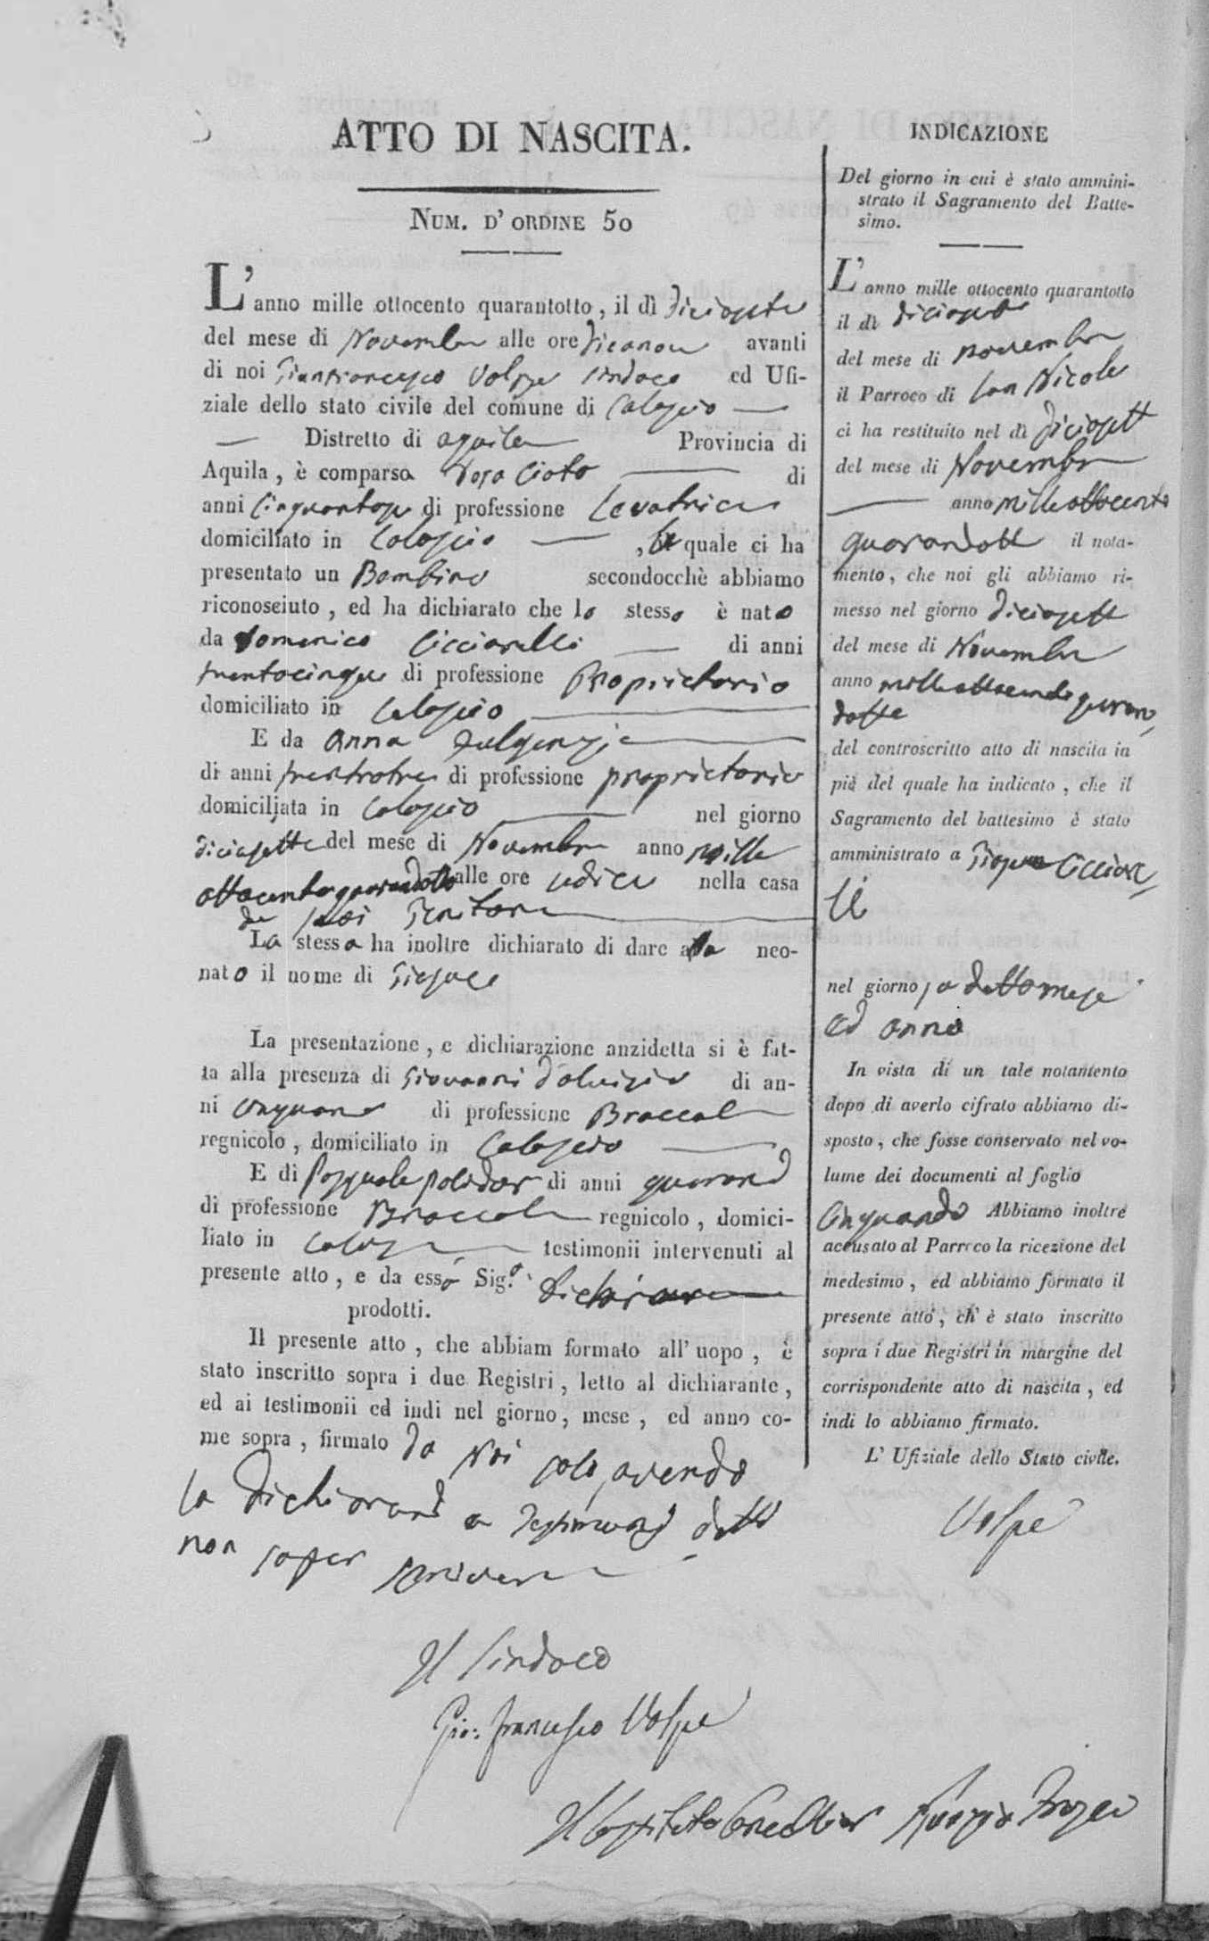 ATTO DI NASCITA.
NUM. D' ORDINE 50
L'anno mille ottocento quarantotto, il dì diciasette
del mese di Novembre alle ore diecanove avanti
di noi Gianfrancesco Volpe sindaco ed Ufi-
ziale dello stato civile del comune di Calascio
Distretto di aquila Provincia di
Aquila, è comparsa Rosa Cioto di
anni Cinquantase di professione Levatrice
domiciliato in Calascio, la quale ci ha
presentato un Bambino secondocchè abbiamo
riconosciuto, ed ha dichiarato che lo stesso è nato
da Domenico Cicciarelli di anni
trentacinque di professione Proprietario
domiciliato in Calascio
E da Anna Fulgenzi
di anni trentatre di professione proprietaria
domiciliata in Calascio nel giorno
diciasette del mese di Novembre anno mille
ottocentoquarandotto alle ore undici nella casa
de suoi Genitori
La stessa ha inoltre dichiarato di dare al neo-
nato il nome di Giosuè
La presentazione, e dichiarazione anzidetta si è fat-
ta alla presenza di Giovanni d'Aluisio di an-
ni cinquant di professione Braccale
regnicolo, domiciliato in Calascio
E di Pasquale Polidoro di anni quarand
di professione Braccale regnicolo, domici-
liato in Calascio testimonii intervenuti al
presente atto, e da essa Sig.a Dichiarante
prodotti.
Il presente atto, che abbiam formato all' uopo, è
stato inscritto sopra i due Registri, letto al dichiarante,
ed ai testimonii ed indi nel giorno, mese, ed anno co-
me sopra, firmato da Noi solo, avendo
la Dichiarand e Testimonj detto
non saper scrivere
Il Sindaco
Gio: Francesco Volpe
INDICAZIONE
Del giorno in cui è stato ammini-
strato il Sagramento del Batte-
simo.
L'anno mille ottocento quarantotto
il dì diciasette
del mese di novembre
il Parroco di San Nicola
ci ha restituito nel dì diciasett
del mese di Novembre
anno milleottocento
quarandott il nota-
mento, che noi gli abbiamo ri-
messo nel giorno diciasett
del mese di Novembre
anno milleottocendoquaran
dotte
del controscritto atto di nascita in
piè del quale ha indicato, che il
Sagramento del battesimo è stato
amministrato a Giosue Cicciarel
li
nel giorno sa detto mese
ed anno
In vista di un tale notamento
dopo di averlo cifrato abbiamo di-
sposto, che fosse conservato nel vo-
lume dei documenti al foglio
Cinquando Abbiamo inoltre
accusato al Parroco la ricezione del
medesimo, ed abbiamo formato il
presente atto, ch' è stato inscritto
sopra i due Registri in margine del
corrispondente atto di nascita, ed
indi lo abbiamo firmato.
L' Ufiziale dello Stato civile.
Volpe